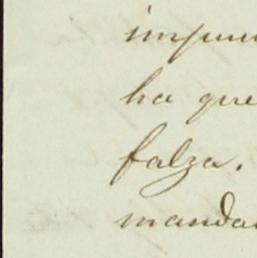 impun
ha que
falza.
manda